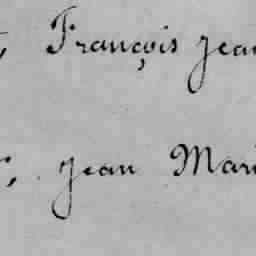 , François Jean
, Jean Mari